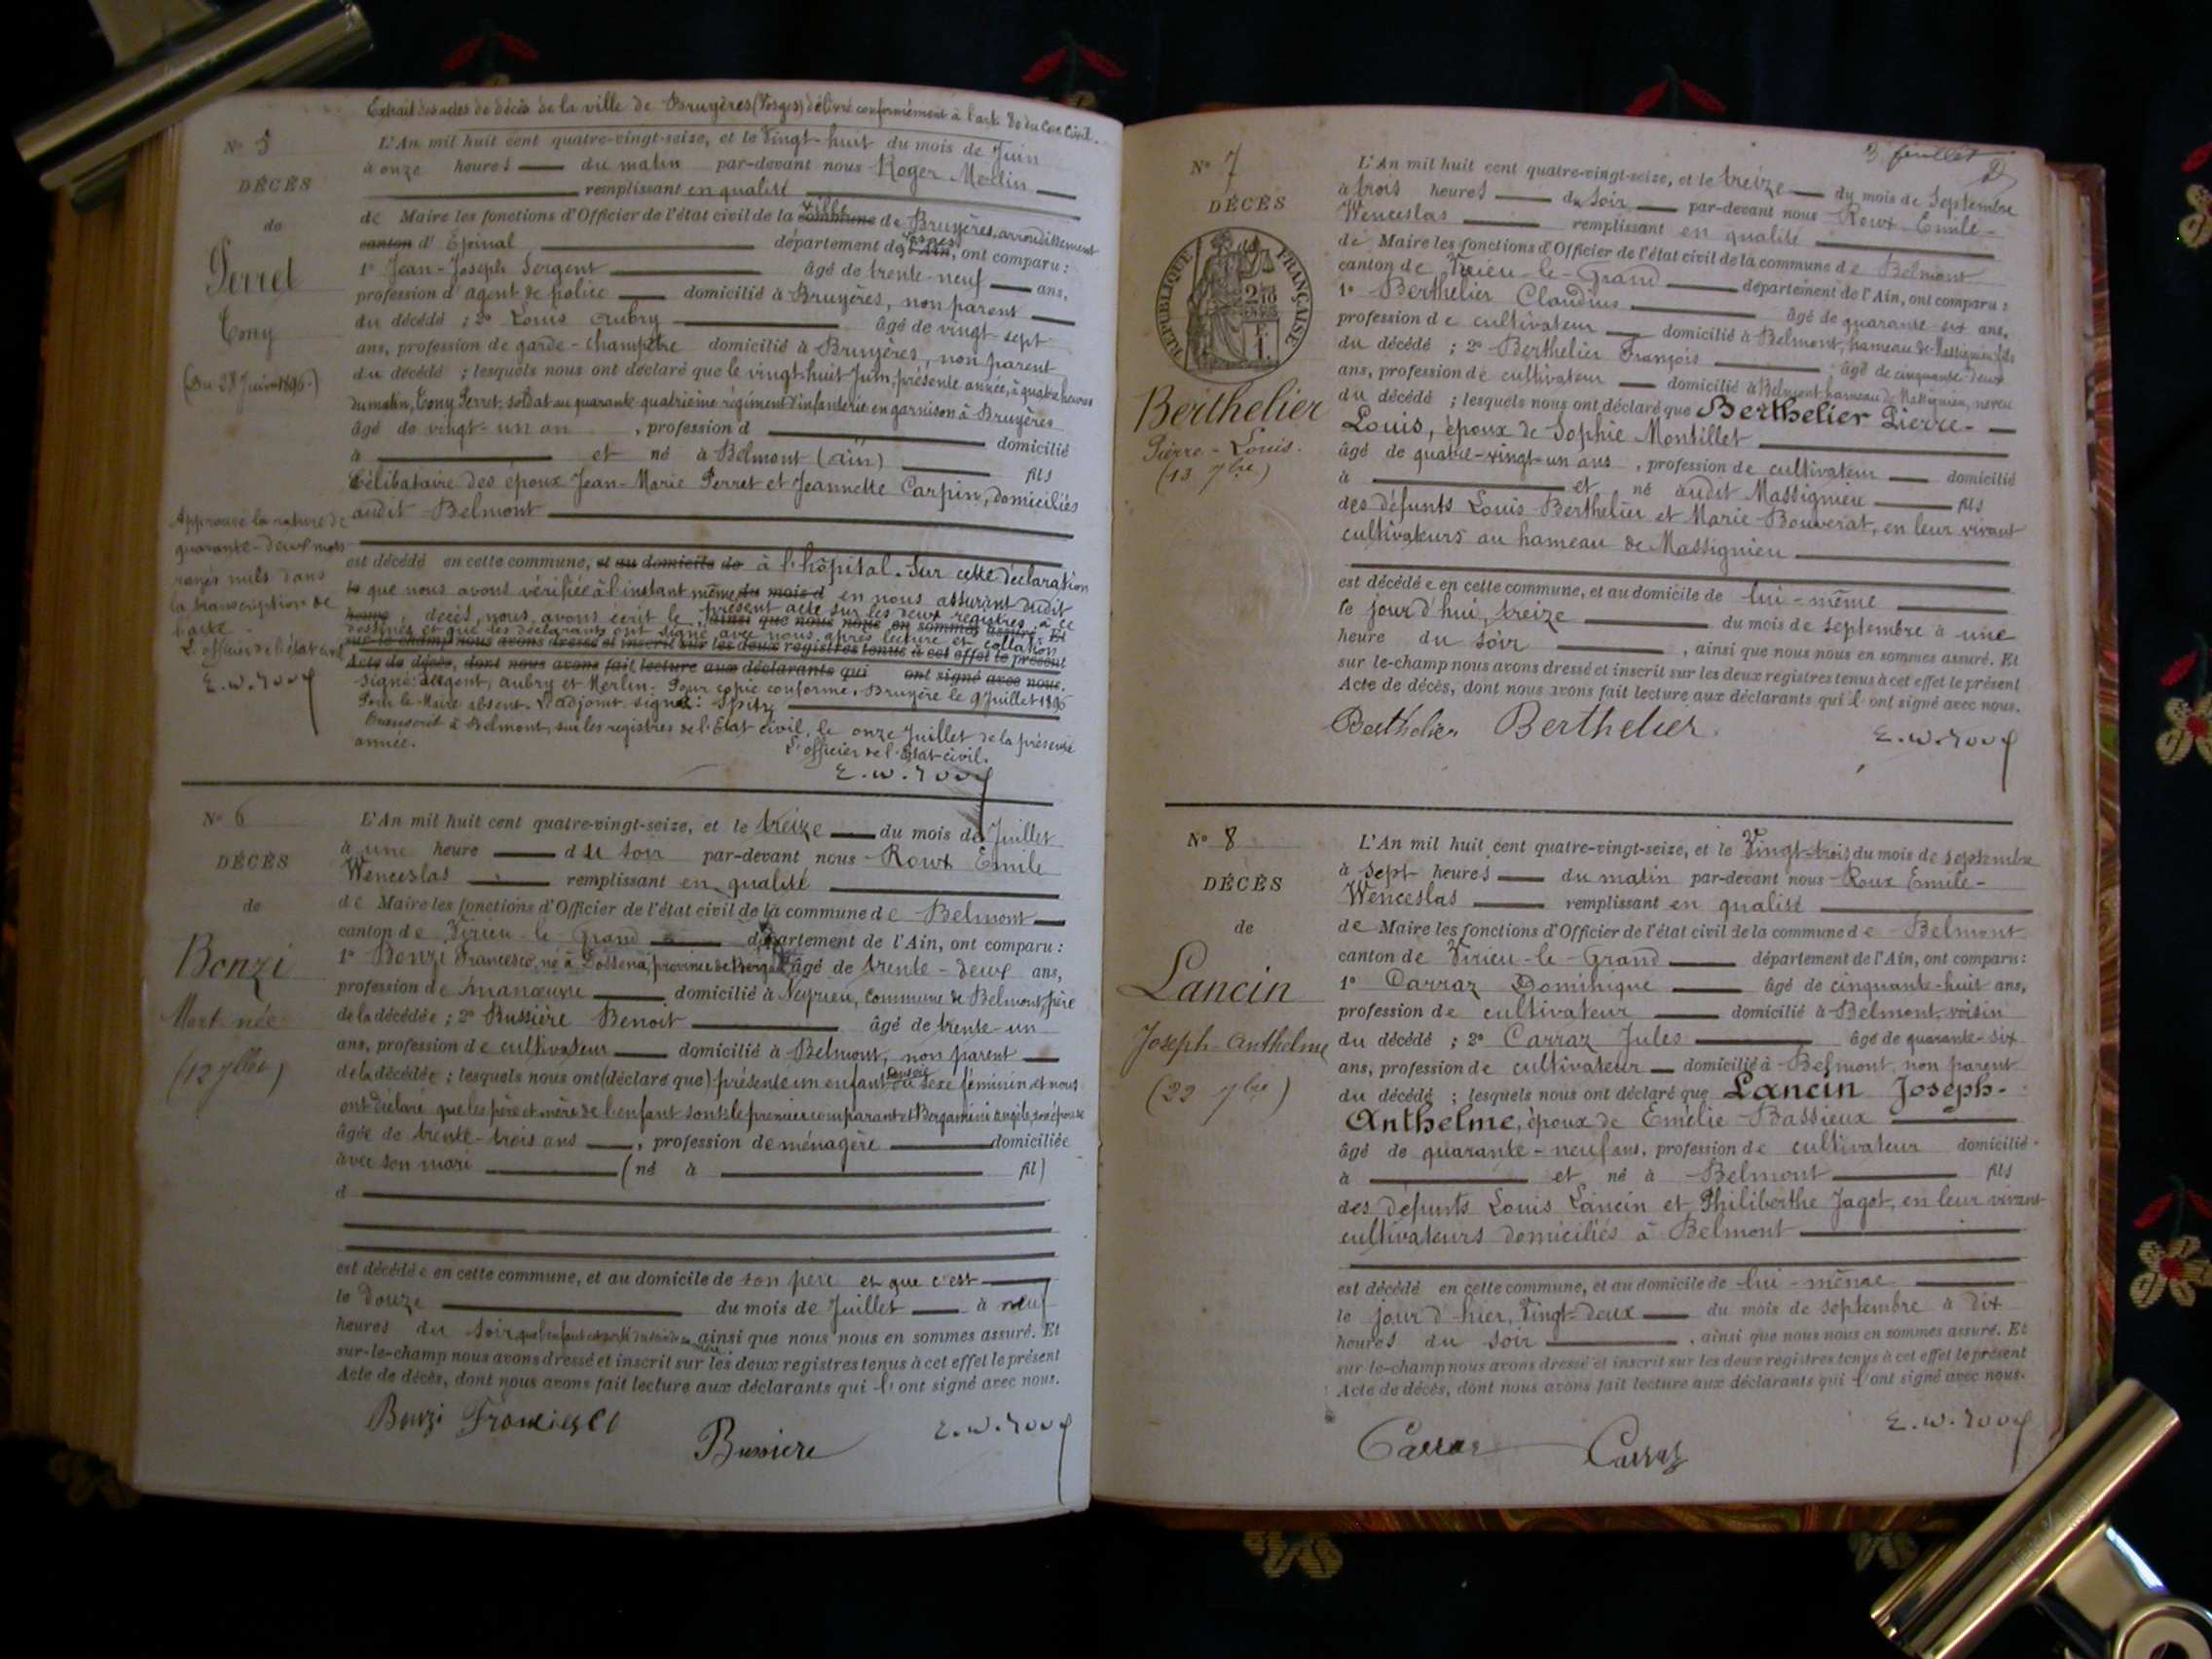 Extrait des actes de décès de la ville de Bruyères (Vosges) délivré conformément à l'art. 80 du Code Civil.
N° 5
DÉCÈS
de
Perret
Tony
(Du 28 Juin 1896)
L'An mil huit cent quatre-vingt-seize, et le Vingt-huit du mois de Juin
à onze heures du matin par-devant nous Roger Merlin
remplissant en qualité
de Maire les fonctions d'Officier de l'état civil de la commune ville de Bruyères, arrondissement
canton d'Epinal département de l'Ain Vosges, ont comparu :
1° Jean-Joseph Sergent âgé de trente-neuf ans,
profession d'agent de police domicilié à Bruyères, non parent
du décédé ; 2° Louis Aubry âgé de vingt-sept
ans, profession de garde-champêtre domicilié à Bruyères, non parent
du décédé ; lesquels nous ont déclaré que le vingt-huit Juin, présente année, à quatre heures
du matin, Tony Perret, soldat au quarante-quatrième régiment d'infanterie en garnison à Bruyères
âgé de vingt-un an , profession d domicilié
à et né à Belmont (Ain) fils
Célibataire des époux Jean-Marie Perret et Jeannette Carpin, domiciliés
audit Belmont
est décédé en cette commune, et au domicile de à l'hôpital. Sur cette déclaration
le que nous avons vérifiée à l'instant même du mois d en nous assurant dudit
heure décès, nous avons écrit le présent acte sur les deux registres à ce
ainsi que nous nous en sommes assuré. Et
destinés et que les déclarants ont signé avec nous après lecture et collation
sur-le-champ nous avons dressé et inscrit sur les deux registres tenus à cet effet le présent
Acte de décès, dont nous avons fait lecture aux déclarants qui ont signé avec nous.
Signé: Sergent, Aubry et Merlin. Pour copie conforme. Bruyère le 9 Juillet 1896
Pour le Maire absent. L'adjoint signé: Spitz
Transcrit à Belmont, sur les registres de l'Etat civil, le onze Juillet de la présente
année.
L'officier de l'Etat-civil.
E. W. Roux
Approuvé la rature de
quarante-deux mots
rayés nuls dans
la transcription de
l'acte
L'officier de l'état civil
E. W. Roux
N° 6
DÉCÈS
de
Bonzi
Mort-née
(12 Jllet)
L'An mil huit cent quatre-vingt-seize, et le treize du mois de Juillet
à une heure du soir par-devant nous Roux Emile
Wenceslas remplissant en qualité
de Maire les fonctions d'Officier de l'état civil de la commune de Belmont
canton de Virieu-le-Grand département de l'Ain, ont comparu :
1° Bonzi Francesco, né à Dossena, province de âgé de trente-deux ans,
profession de manœuvre domicilié à Neyrieu, commune de Belmont, père
de la décédée ; 2° Bussière Benoit âgé de trente-un
ans, profession de cultivateur domicilié à Belmont, non parent
de la décédée ; lesquels nous ont (déclaré que) présenté un enfant du sexe féminin, et nous
ont déclaré que les père et mère de l'enfant sont le premier comparant et Bergamini Angèle, son épouse
âgée de trente-trois ans , profession de ménagère domiciliée
avec son mari (né à fil)
d
est décédée en cette commune, et au domicile de son père et que c'est
le douze du mois de Juillet à neuf
heures du soir que l'enfant est sorti du sein de sa mère ainsi que nous nous en sommes assuré. Et
sur-le-champ nous avons dressé et inscrit sur les deux registres tenus à cet effet le présent
Acte de décès, dont nous avons fait lecture aux déclarants qui l'ont signé avec nous.
Bonzi Francesco
Bussiere
E. W. Roux
3e feuillet
N° 7
DÉCÈS
RÉPUBLIQUE FRANÇAISE
Berthelier
Pierre-Louis.
(13 7bre)
L'An mil huit cent quatre-vingt-seize, et le treize du mois de Septembre
à trois heures du soir par-devant nous Roux Emile-
Wenceslas remplissant en qualité
de Maire les fonctions d'Officier de l'état civil de la commune de Belmont
canton de Virieu-le-Grand département de l'Ain, ont comparu :
1° Berthelier Claudius âgé de quarante-six ans,
profession de cultivateur domicilié à Belmont, hameau de Massignieu, fils
du décédé ; 2° Berthelier François âgé de cinquante-deux
ans, profession de cultivateur domicilié à Belmont, hameau de Massignieu, neveu
du décédé ; lesquels nous ont déclaré que Berthelier Pierre-
Louis, époux de Sophie Montillet
âgé de quatre-vingt-un ans , profession de cultivateur domicilié
à et né audit Massignieu fils
des défunts Louis Berthelier et Marie Bouverat, en leur vivant
cultivateurs au hameau de Massignieu
est décédé e en cette commune, et au domicile de lui-même
le jour d'hui, treize du mois de septembre à une
heure du soir , ainsi que nous nous en sommes assuré. Et
sur-le-champ nous avons dressé et inscrit sur les deux registres tenus à cet effet le présent
Acte de décès, dont nous avons fait lecture aux déclarants qui l'ont signé avec nous.
Berthelier Berthelier
E. W. Roux
N° 8
DÉCÈS
de
Lancin
Joseph-Anthelme
(22 7bre)
L'An mil huit cent quatre-vingt-seize, et le Vingt-trois du mois de septembre
à sept heures du matin par-devant nous Roux Emile-
Wenceslas remplissant en qualité
de Maire les fonctions d'Officier de l'état civil de la commune de Belmont
canton de Virieu-le-Grand département de l'Ain, ont comparu :
1° Carraz Dominique âgé de cinquante-huit ans,
profession de cultivateur domicilié à Belmont, voisin
du décédé ; 2° Carraz Jules âgé de quarante-six
ans, profession de cultivateur domicilié à Belmont, non parent
du décédé ; lesquels nous ont déclaré que Lancin Joseph-
Anthelme, époux de Emélie Bassieux
âgé de quarante-neuf ans, profession de cultivateur domicilié
à et né à Belmont fils
des défunts Louis Lancin et Philiberthe Jagot, en leur vivant
cultivateurs domiciliés à Belmont
est décédé en cette commune, et au domicile de lui-même
le jour d'hier, Vingt-deux du mois de septembre à dix
heures du soir , ainsi que nous nous en sommes assuré. Et
sur-le-champ nous avons dressé et inscrit sur les deux registres tenus à cet effet le présent
Acte de décès, dont nous avons fait lecture aux déclarants qui l'ont signé avec nous.
Carraz Carraz
E. W. Roux